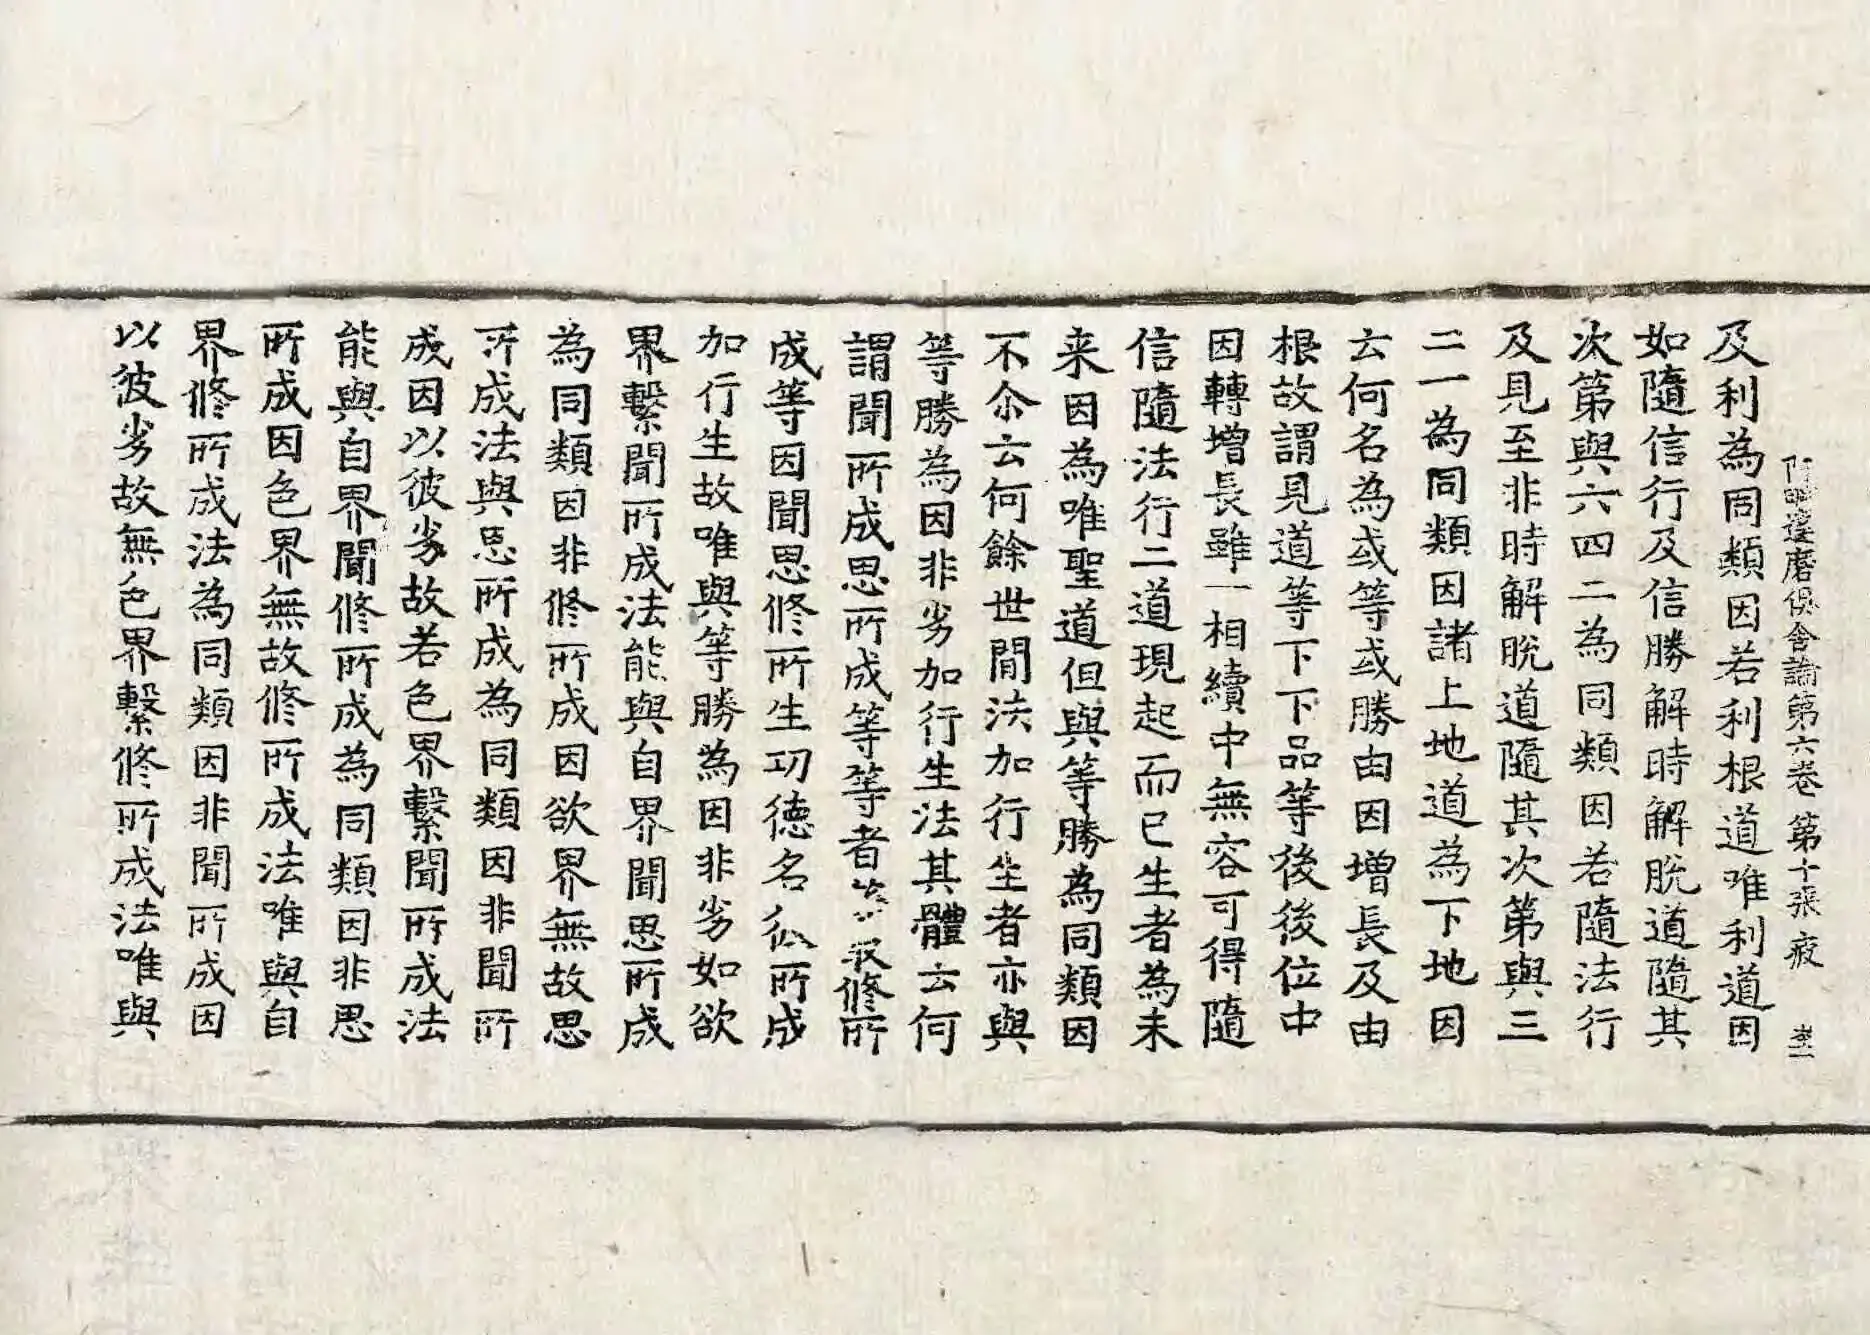 阿毗達磨俱舍論第六卷 第十張 疲
及利為同類因若利根道唯利道因
如隨信行及信勝解時解脫道隨其
次第與六四二為同類因若隨法行
及見至非時解脫道隨其次第與三
二一為同類因諸上地道為下地因
云何名為或等或勝由因增長及由
根故謂見道等下下品等後後位中
因轉增長雖一相續中無容可得隨
信隨法行二道現起而已生者為未
来因為唯聖道但與等勝為同類因
不尒云何餘世間法加行生者亦與
等勝為因非劣加行生法其體云何
謂聞所成思所成等等者取修所
成等因聞思修所生功德名彼所成
加行生故唯與等勝為因非劣如欲
界繫聞所成法能與自界聞思所成
為同類因非修所成因欲界無故思
所成法與思所成為同類因非聞所
成因以彼劣故若色界繫聞所成法
能與自界聞修所成為同類因非思
所成因色界無故修所成法唯與自
界修所成法為同類因非聞所成因
以彼劣故無色界繫修所成法唯與